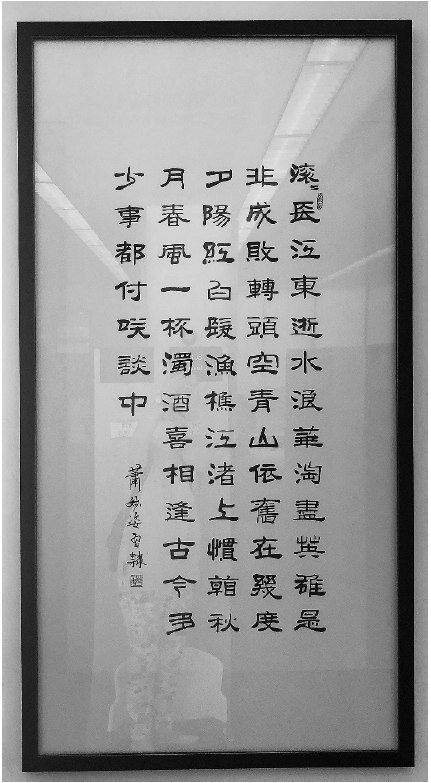 滚〻長江東逝水浪華淘盡英雄是
非成敗轉頭空青山依舊在幾度
夕陽紅白髮漁樵江渚上慣看秋
月春風一杯濁酒喜相逢古今多
少事都付咲談中
蕭